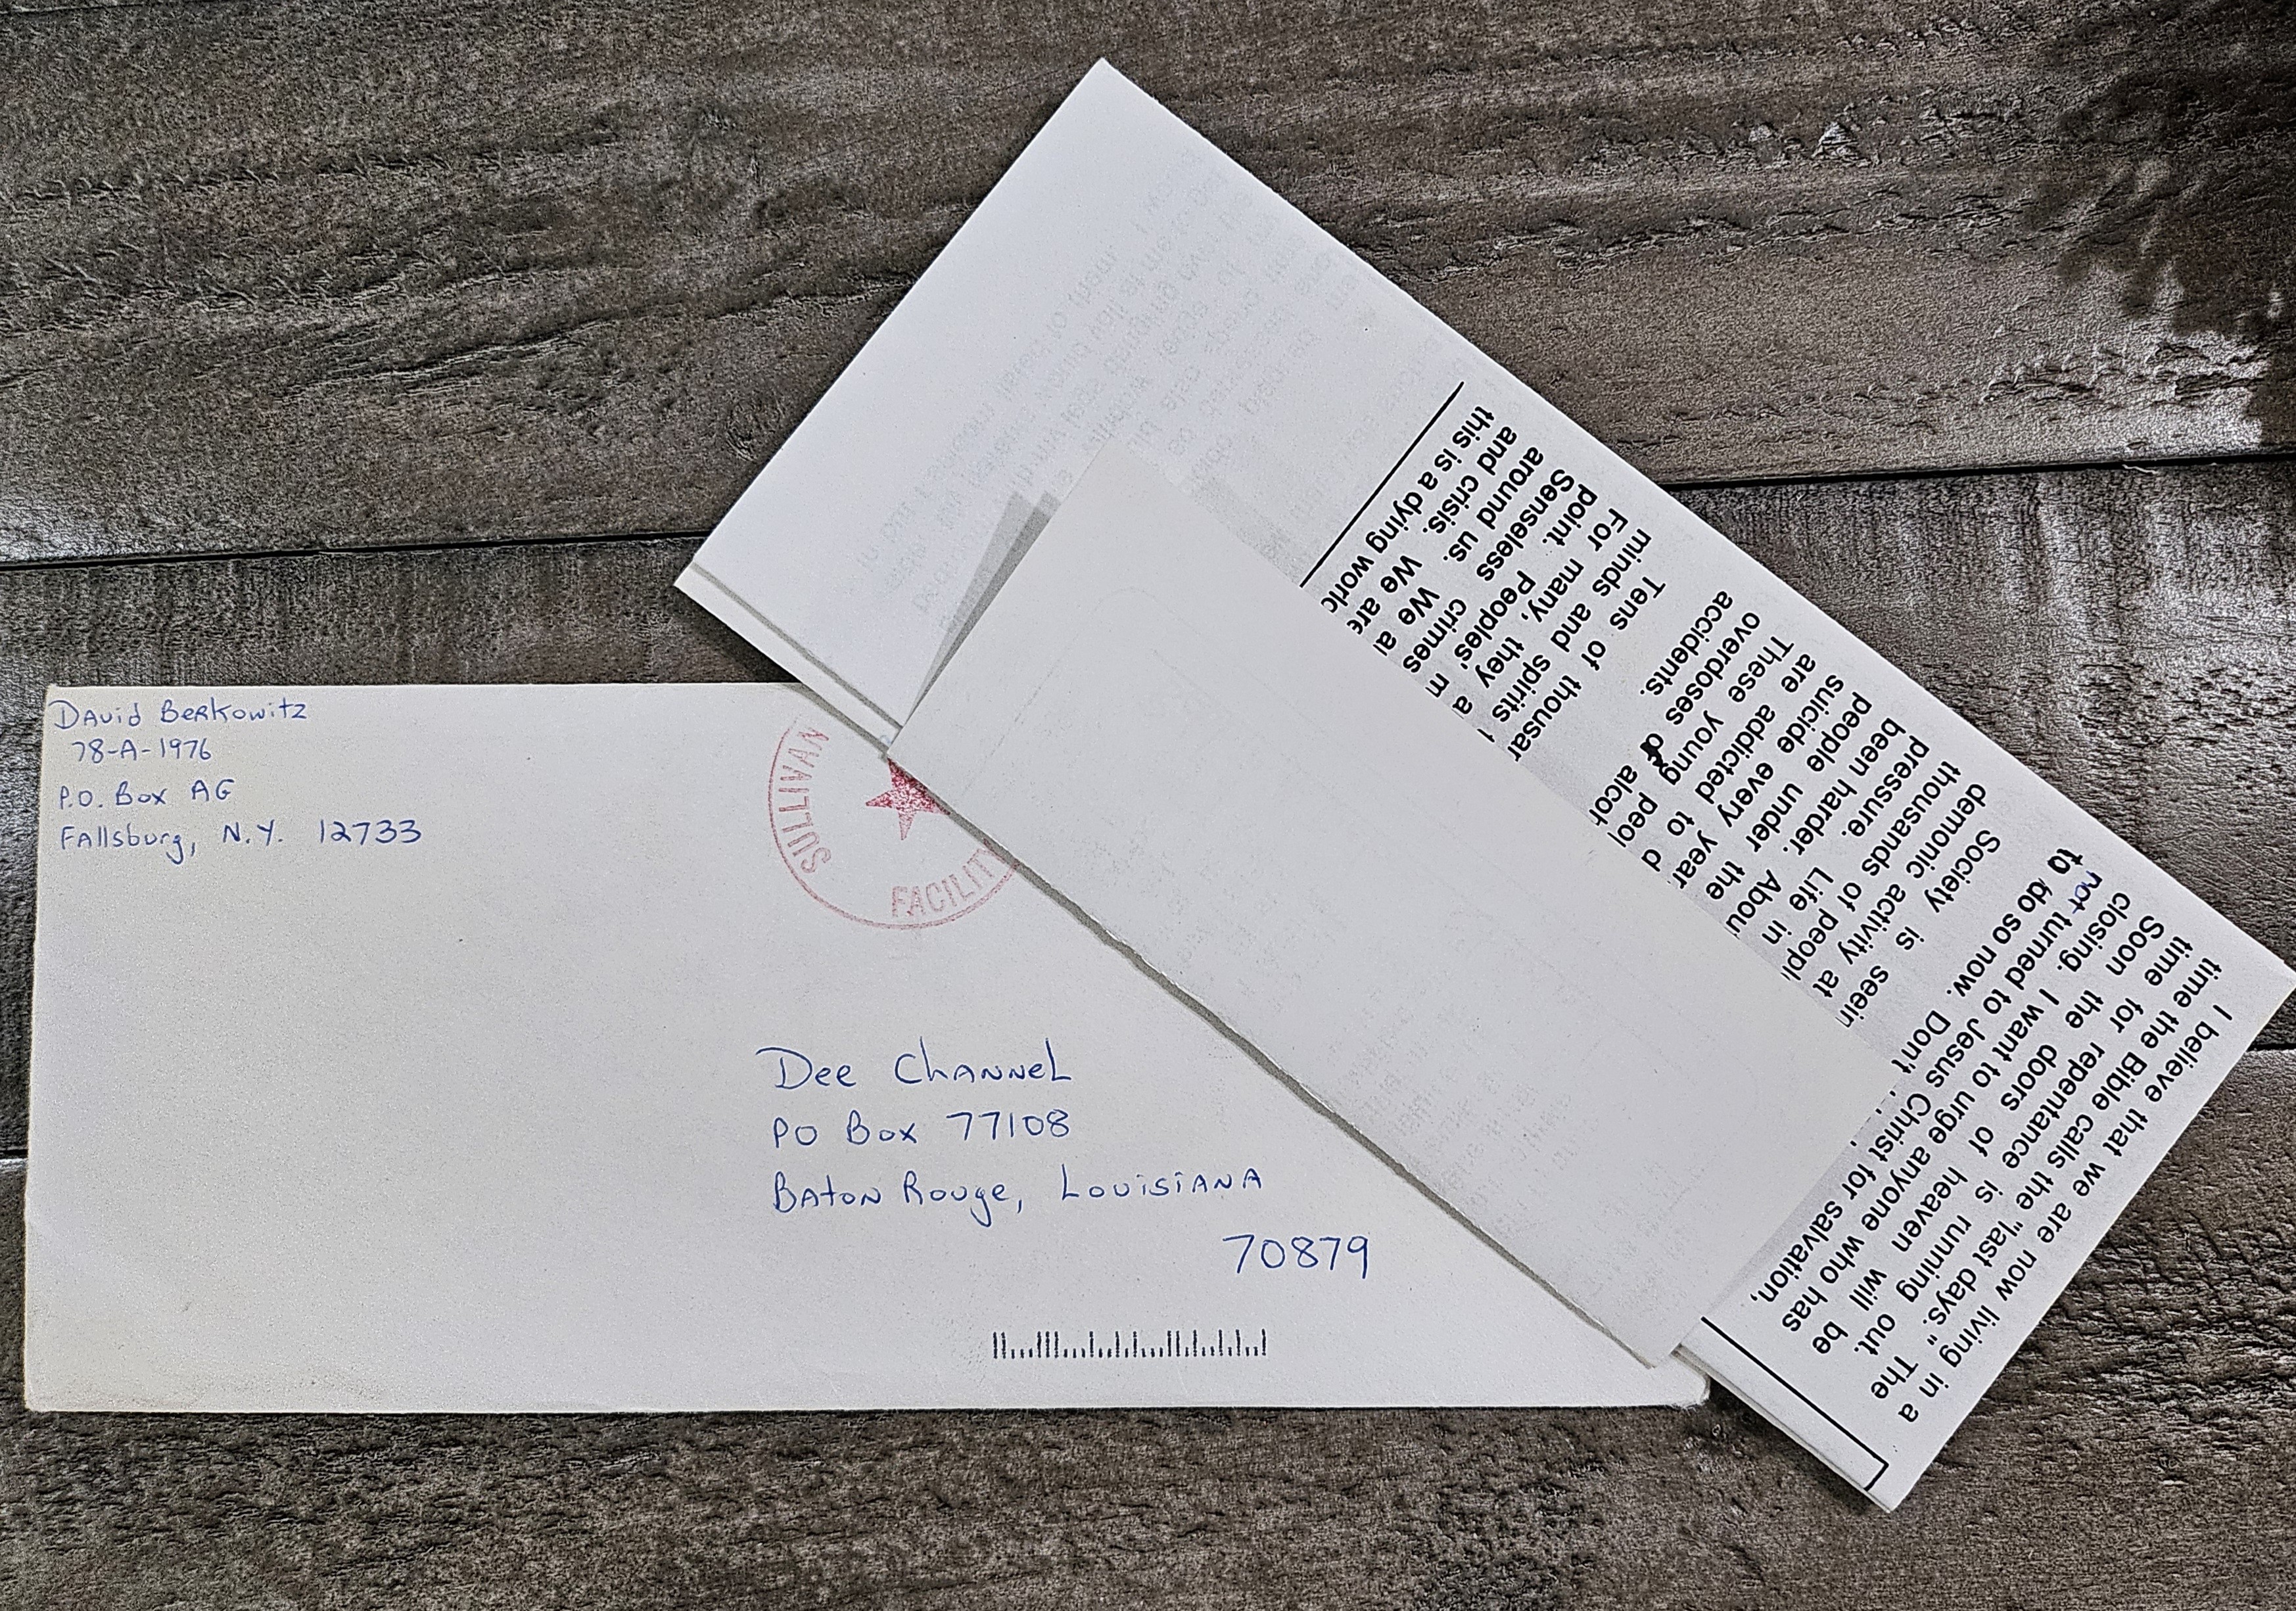 David Berkowitz
78-A-1976
P.O. Box AG
Fallsburg, N.Y. 12733
SULLIVAN
FACILITY
Dee Channel
PO Box 77108
Baton Rouge, Louisiana
70879
I believe that we are now living in a
time the Bible calls the "last days." The
time for repentance is running out.
Soon the doors of heaven will be
closing. I want to urge anyone who has
not turned to Jesus Christ for salvation,
to do so now. Don't
Society is seein
demonic activity at
thousands of peopl
pressure. Life in
been harder. Abou
people under the
suicide every year
are addicted to d
These young peop
overdoses or alcoh
accidents.
Tens of thousan
minds and spirits
For many, they
point. Peoples'
Senseless crimes
around us. We
and crisis. We are
this is a dying worl